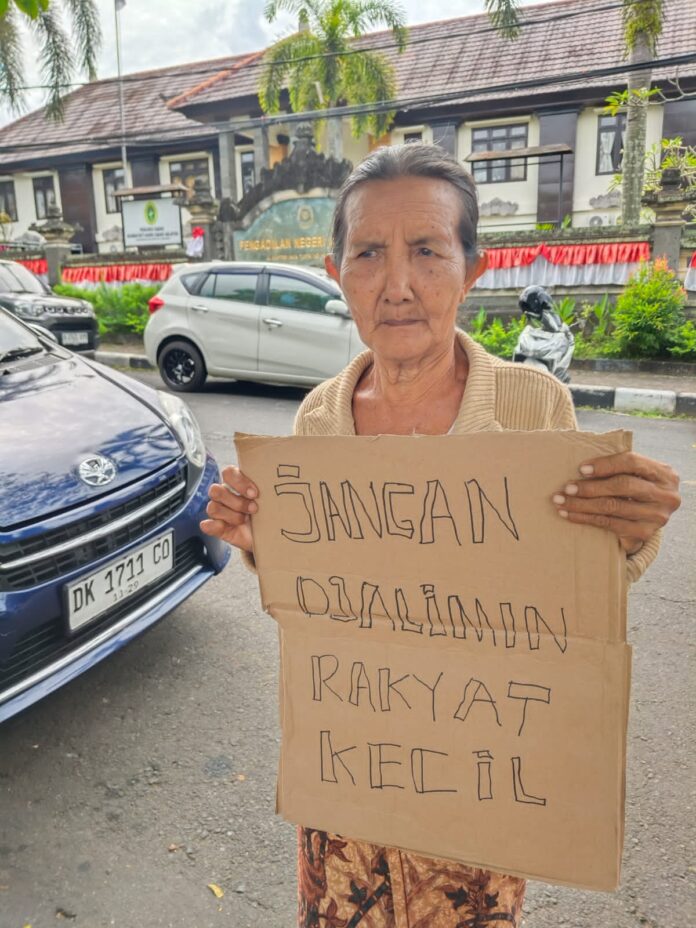 PENGADILAN NEGERI
DK 1711 CO
11·29
JANGAN
DJALIMIN
RAKYAT
KECIL